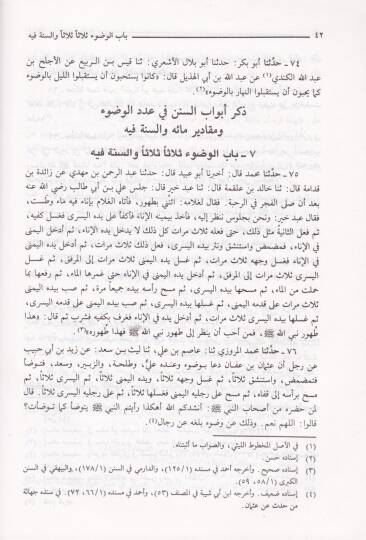 ٤٢ باب الوضوء ثلاثاً ثلاثاً والسنة فيه
٧٤ ـ حدّثنا أبو بكر: حدثنا أبو بلال الأشعري: ثنا قيس بن الربيع عن الأجلح بن
عبد الله الكندي(١) عن عبد الله بن أبي الهذيل قال: «كانوا يستحبون أن يستقبلوا الليل بالوضوء
كما يحبون أن يستقبلوا النهار بالوضوء»(٢).
ذكر أبواب السنن في عدد الوضوء
ومقادير مائه والسنة فيه
٧ ـ باب الوضوء ثلاثاً ثلاثاً والسنة فيه
٧٥ ـ حدّثنا محمد قال: أخبرنا أبو عبيد قال: حدثنا عبد الرحمن بن مهدي عن زائدة بن
قدامة قال: ثنا خالد بن علقمة قال: ثنا عبد خير قال: جلس علي بن أبي طالب رضي الله عنه
بعد أن صلى الفجر في الرحبة. فقال لغلامه: ائتني بطهور، فأتاه الغلام بإناء فيه ماء وطست،
فقال عبد خير: ونحن جلوس ننظر إليه، فأخذ بيمينه الإناء فأكفأ على يده اليسرى فغسل كفيه،
ثم فعل الثانية مثل ذلك، حتى فعله ثلاث مرات كل ذلك لا يدخل يده الإناء، ثم أدخل اليمنى
في الإناء، فمضمض واستنشق ونثر بيده اليسرى، فعل ذلك ثلاث مرات، ثم أدخل يده اليمنى
في الإناء فغسل وجهه ثلاث مرات، ثم غسل يده اليمنى ثلاث مرات إلى المرفق، ثم غسل يده
اليسرى ثلاث مرات إلى المرفق، ثم أدخل يده اليمنى في الإناء حتى غمرها الماء، ثم رفعها بما
حملت من الماء، ثم مسحها بيده اليسرى، ثم مسح رأسه بيديه جميعاً مرة، ثم صب بيده اليمنى
ثلاث مرات على قدمه اليمنى، ثم غسلها بيده اليسرى، ثم صب بيده اليمنى على قدمه اليسرى،
ثم غسلها بيده اليسرى ثلاث مرات، ثم أدخل يده في الإناء فغرف بكفيه فشرب ثم قال: «هذا
طُهور نبي الله ﷺ، فمن أحب أن ينظر إلى طهور نبي الله ﷺ فهذا طُهوره»(٣).
٧٦ ـ حدّثنا محمد المروزي ثنا: عاصم بن علي، ثنا ليث بن سعد: عن زيد بن أبي حبيب
عن رجل أن عثمان بن عفان دعا بوضوء وعنده عليٌّ، وطلحة، والزبير، وسعد، فتوضأ
فتمضمض، واستنشق ثلاثاً، ثم غسل وجهه ثلاثاً، ويده اليمنى ثلاثاً، ثم يده اليسرى ثلاثاً، ثم
مسح برأسه إلى قفاه، ثم مسح على رجليه اليمنى فغسلها ثلاثاً، ثم غسل رجله اليسرى ثلاثاً. قال
لمن حضره من أصحاب النبي ﷺ: أنشدكم الله أهكذا رأيتم النبي ﷺ يتوضأ كما توضأت؟
قالوا: اللهم نعم. وذلك عن وضوء بلغه عن رجال(٤).
(١) في الأصل المخطوط الليثي، والصواب ما أثبتاه.
(٢) إسناده حسن.
(٣) إسناده صحيح. وأخرجه أحمد في مسنده (١٢٥/١)، والدارمي في السنن (١٧٨/١)، والبيهقي في السنن
الكبرى (٥٨/١، ٥٩).
(٤) إسناده ضعيف. وأخرجه ابن أبي شيبة في المصنف (٥٣)، وأحمد في مسنده (٦٦/١، ٧٢). في سنده جهالة
من حدث عن عثمان.